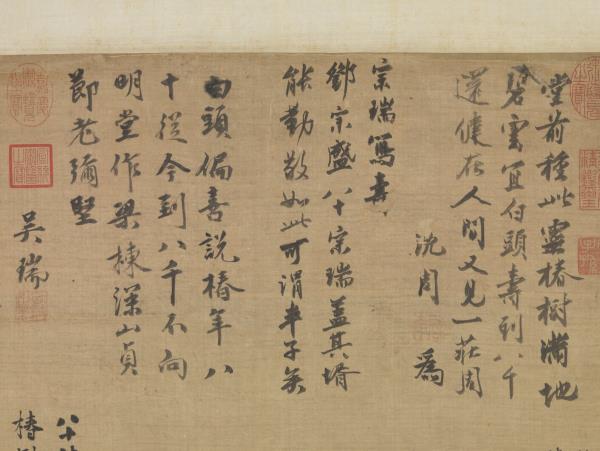 堂前種此靈椿樹滿地
碧雲宜白頭壽到八千
還健在人間又見一莊周
沈周 為
宗瑞寫壽
鄧宗盛八十宗瑞蓋其壻
能勤敬如此可謂半子矣
白頭偏喜說椿年八
十從今到八千不向
明堂作梁棟深山貞
節老彌堅
吳瑞
八十
椿